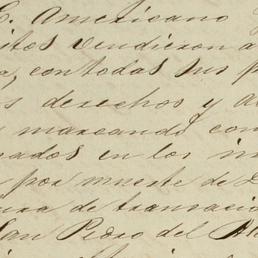 C. Americano
itos vendieron a
a, con todas sus p
os derechos y a
marcando con
ados en los in
por muerte de D
ura de transacci
San Pedro del Al